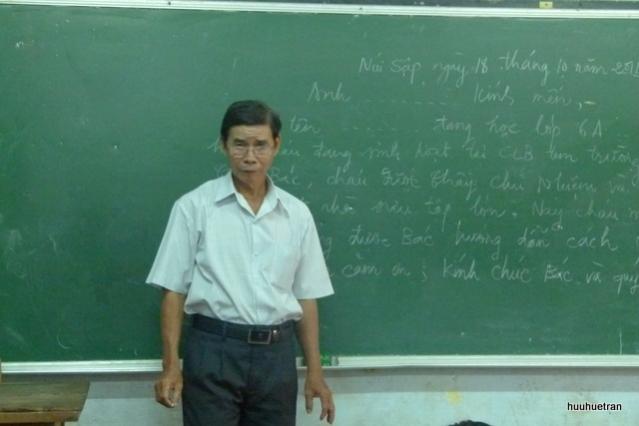 Núi Sập ngày 18 tháng 10 năm 201
Anh .......... kính mến,
tên .......... đang học lớp 6A
đang sinh hoạt tại CLB tem trường
Bác, cháu được thầy chủ nhiệm
sưu tập lớn. Nay cháu
được Bác hướng dẫn cách
cảm ơn ; Kính chúc Bác và quý
huuhuetran